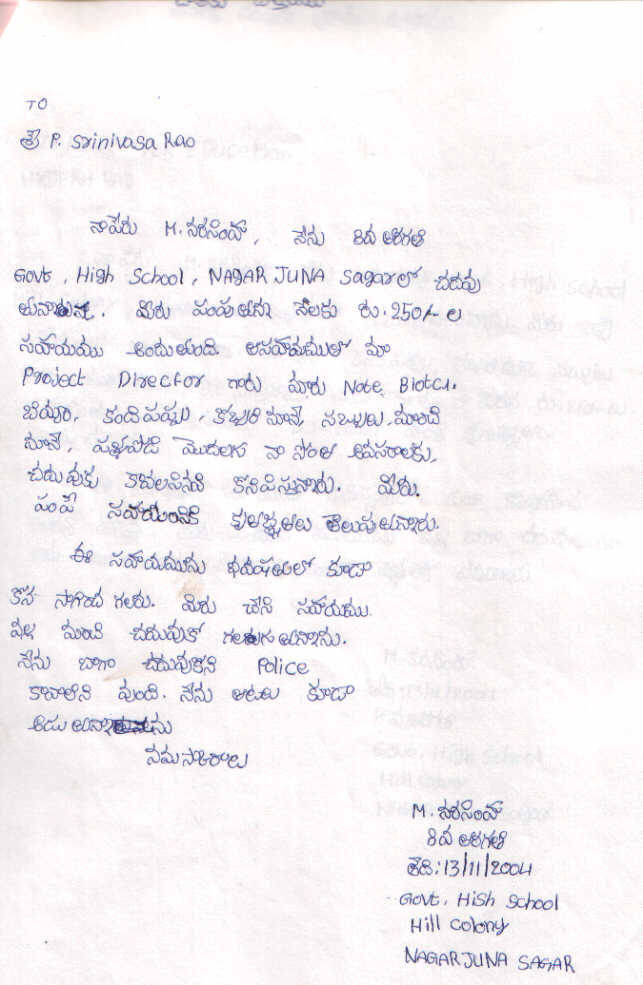 TO
శ్రీ P. Srinivasa Rao
నాపేరు M. నరసింహ, నేను 8వ తరగతి
Govt, High School, NAGAR JUNA Sagarలో చదువు
తున్నాను. మీరు పంపుతున్న నెలకు రు. 250/- ల
సహాయము అందుతుంది. ఆసహాయముతో మా
Project Director గారు మాకు Note,
బియ్యం, కందిపప్పు, కొబ్బరి నూనె, సబ్బులు, మంచి
నూనె, పళ్ళపొడి మొదలగు నా సొంత అవసరాలకు,
చదువుకు కావలసినవి కొనిపిస్తున్నారు. మీరు.
పంపే సహాయంనికి కృతజ్ఞతలు తెలుపుతున్నారు.
ఈ సహాయమును భవిషతులో కూడా
కొన సాగించ గలరు. మీరు చేసే సహాయము
వల్ల మంచి చదువుకో గలుగుతున్నాను.
నేను బాగా చదువుకొని Police
కావాలని వుంది. నేను ఆటలు కూడా
ఆడుతున్నాను
నమస్కారాలు
M. నరసింహ
8వ తరగతి
తేది: 13/11/2004
Govt, High School
Hill colony
NAGARJUNA SAGAR